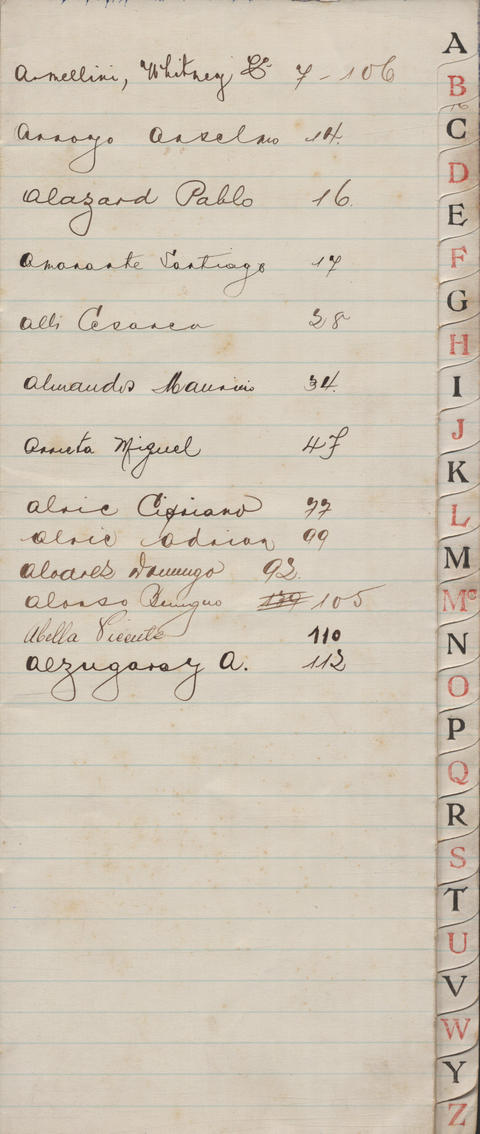 Armellini, Whitney & Cº 7-106
Arroyo Anselmo 14.
Alazard Pablo 16.
Amarante Santiago 17
Alli Cesarea 28
Almandos Mauricio 34.
Arrieta Miguel 47
Alric Cipriano 77
Alric Adrian 99
Alvarez Domingo 92.
Alonso Benigno 105
Abella Vicente 110
Aezugaray A. 112
A
B
C
D
E
F
G
H
I
J
K
L
M
Mc
N
O
P
Q
R
S
T
U
V
W
Y
Z